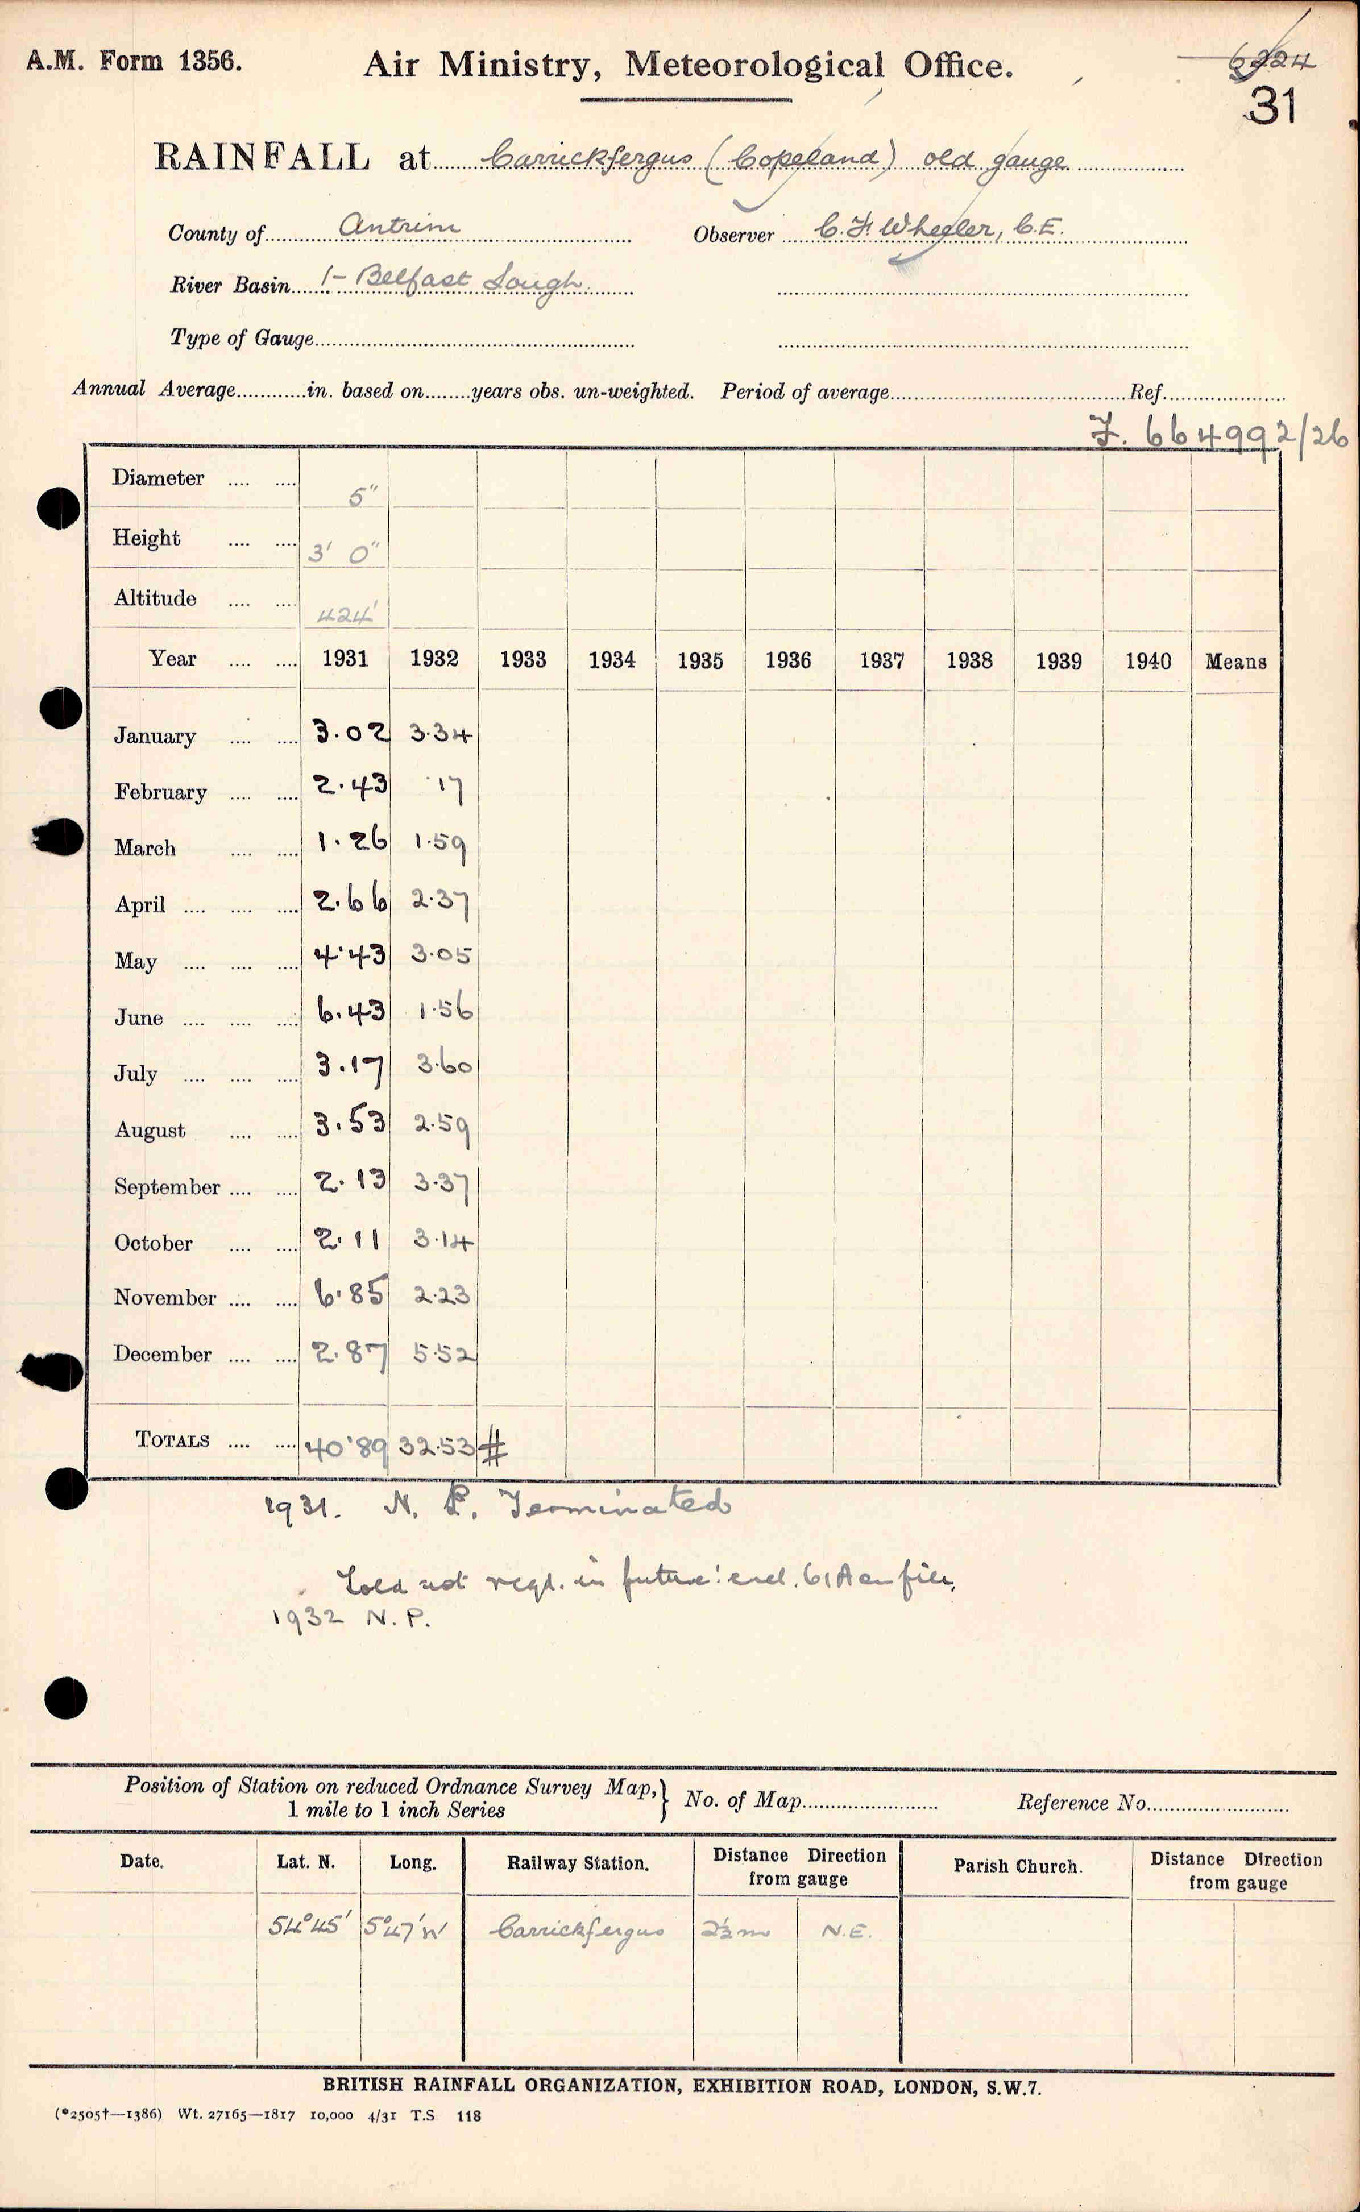 A.M. Form 1356. Air Ministry, Meteorological Office. 6224
31
RAINFALL at Carrickfergus (Copeland) old gauge
County of Antrim Observer C. F. Wheeler, C.E.
River Basin 1- Belfast Lough.
Type of Gauge
Annual Average in. based on years obs. un-weighted. Period of average Ref.
I. 664992/26
Diameter 5"
Height 3' 0"
Altitude 424'
Year 1931 1932 1933 1934 1935 1936 1937 1938 1939 1940 Means
January 3.02 3.34
February 2.43 .17
March 1.26 1.59
April 2.66 2.37
May 4.43 3.05
June 6.43 1.56
July 3.17 3.60
August 3.53 2.59
September 2.13 3.37
October 2.11 3.14
November 6.85 2.23
December 2.87 5.52
TOTALS 40.89 32.53 #
1931. N. P. Terminated
Told not reqd. in future: encl. 61A on file.
1932 N.P.
Position of Station on reduced Ordnance Survey Map, } No. of Map Reference No.
1 mile to 1 inch Series
Date. Lat. N. Long. Railway Station. Distance Direction from gauge Parish Church. Distance Direction from gauge
54°45' 5°47'W Carrickfergus 2½m N.E.
BRITISH RAINFALL ORGANIZATION, EXHIBITION ROAD, LONDON, S.W.7.
(*2505†—1386) Wt. 27165—1817 10,000 4/31 T.S 118